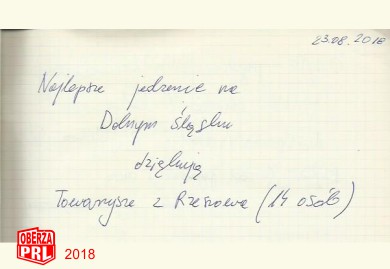 23.08.2018
Najlepsze jedzenie na
Dolnym Śląsku
dziękują
Towarzysze z Rzeszowa (14 osób)
OBERŻA
PRL
2018